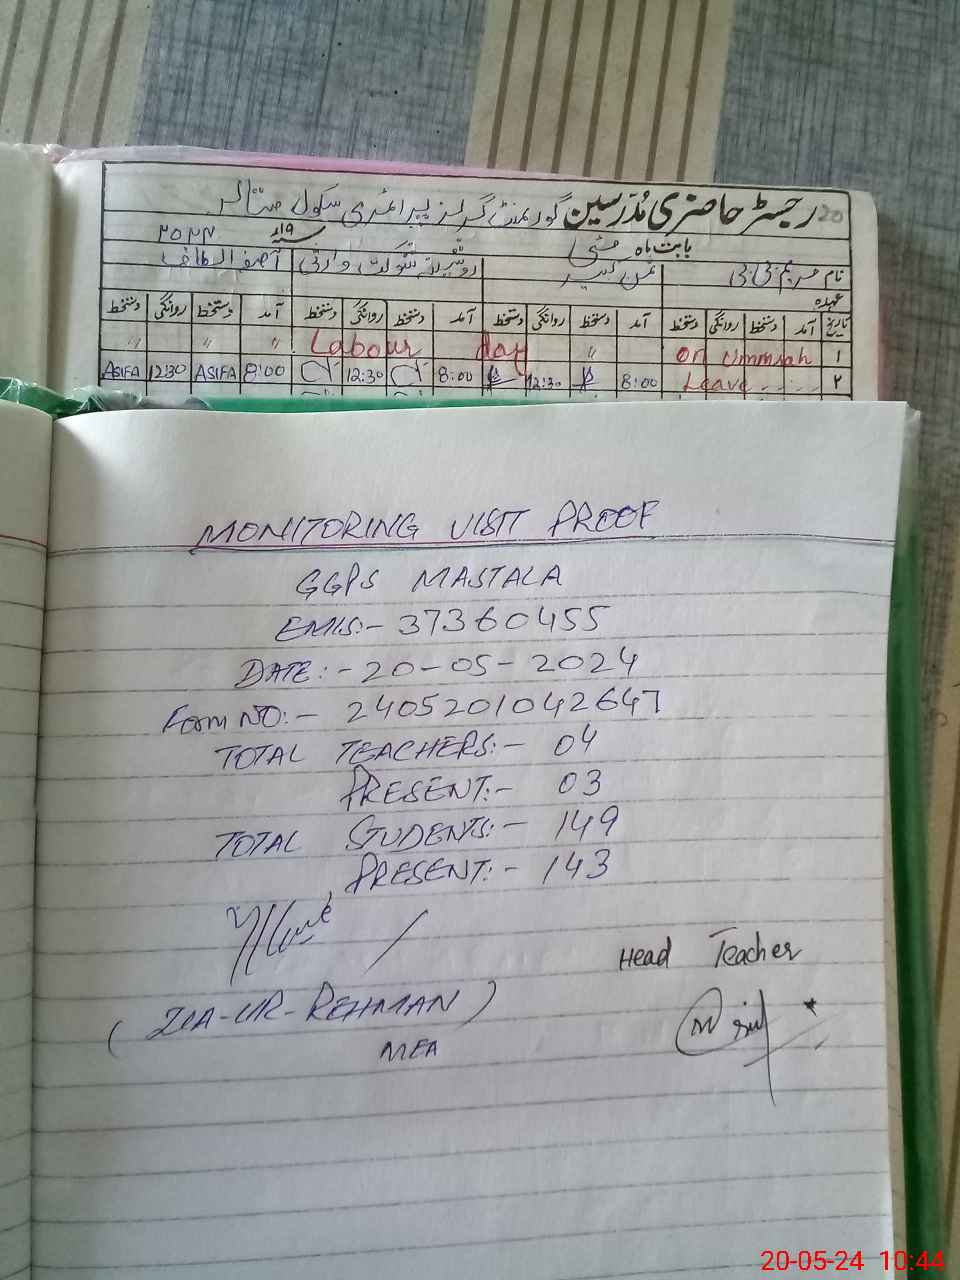 20 رجسٹر حاضری مُدرسین گورنمنٹ گرلز پرائمری سکول مستالہ
بابت ماہ مئی سنہ ۲۰۲۴
نام مریم بی بی
عہدہ
تاریخ آمد دستخط روانگی دستخط آمد دستخط روانگی دستخط آمد دستخط روانگی دستخط آمد دستخط روانگی دستخط
۱ on Ummrah " Labour day " " "
۲ Leave 8:00 12:30 8:00 12:30 8:00 ASIFA 12:30 ASIFA
MONITORING VISIT PROOF
GGPS MASTALA
EMIS:- 37360455
DATE:- 20-05-2024
Form NO:- 2405201042647
TOTAL TEACHERS:- 04
PRESENT:- 03
TOTAL STUDENTS:- 149
PRESENT:- 143
Head Teacher
(ZIA-UR-REHMAN)
MEA
20-05-24 10:44